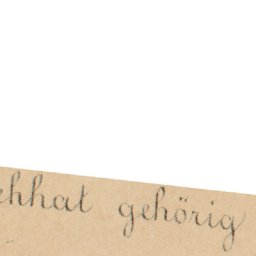 ehhat gehörig